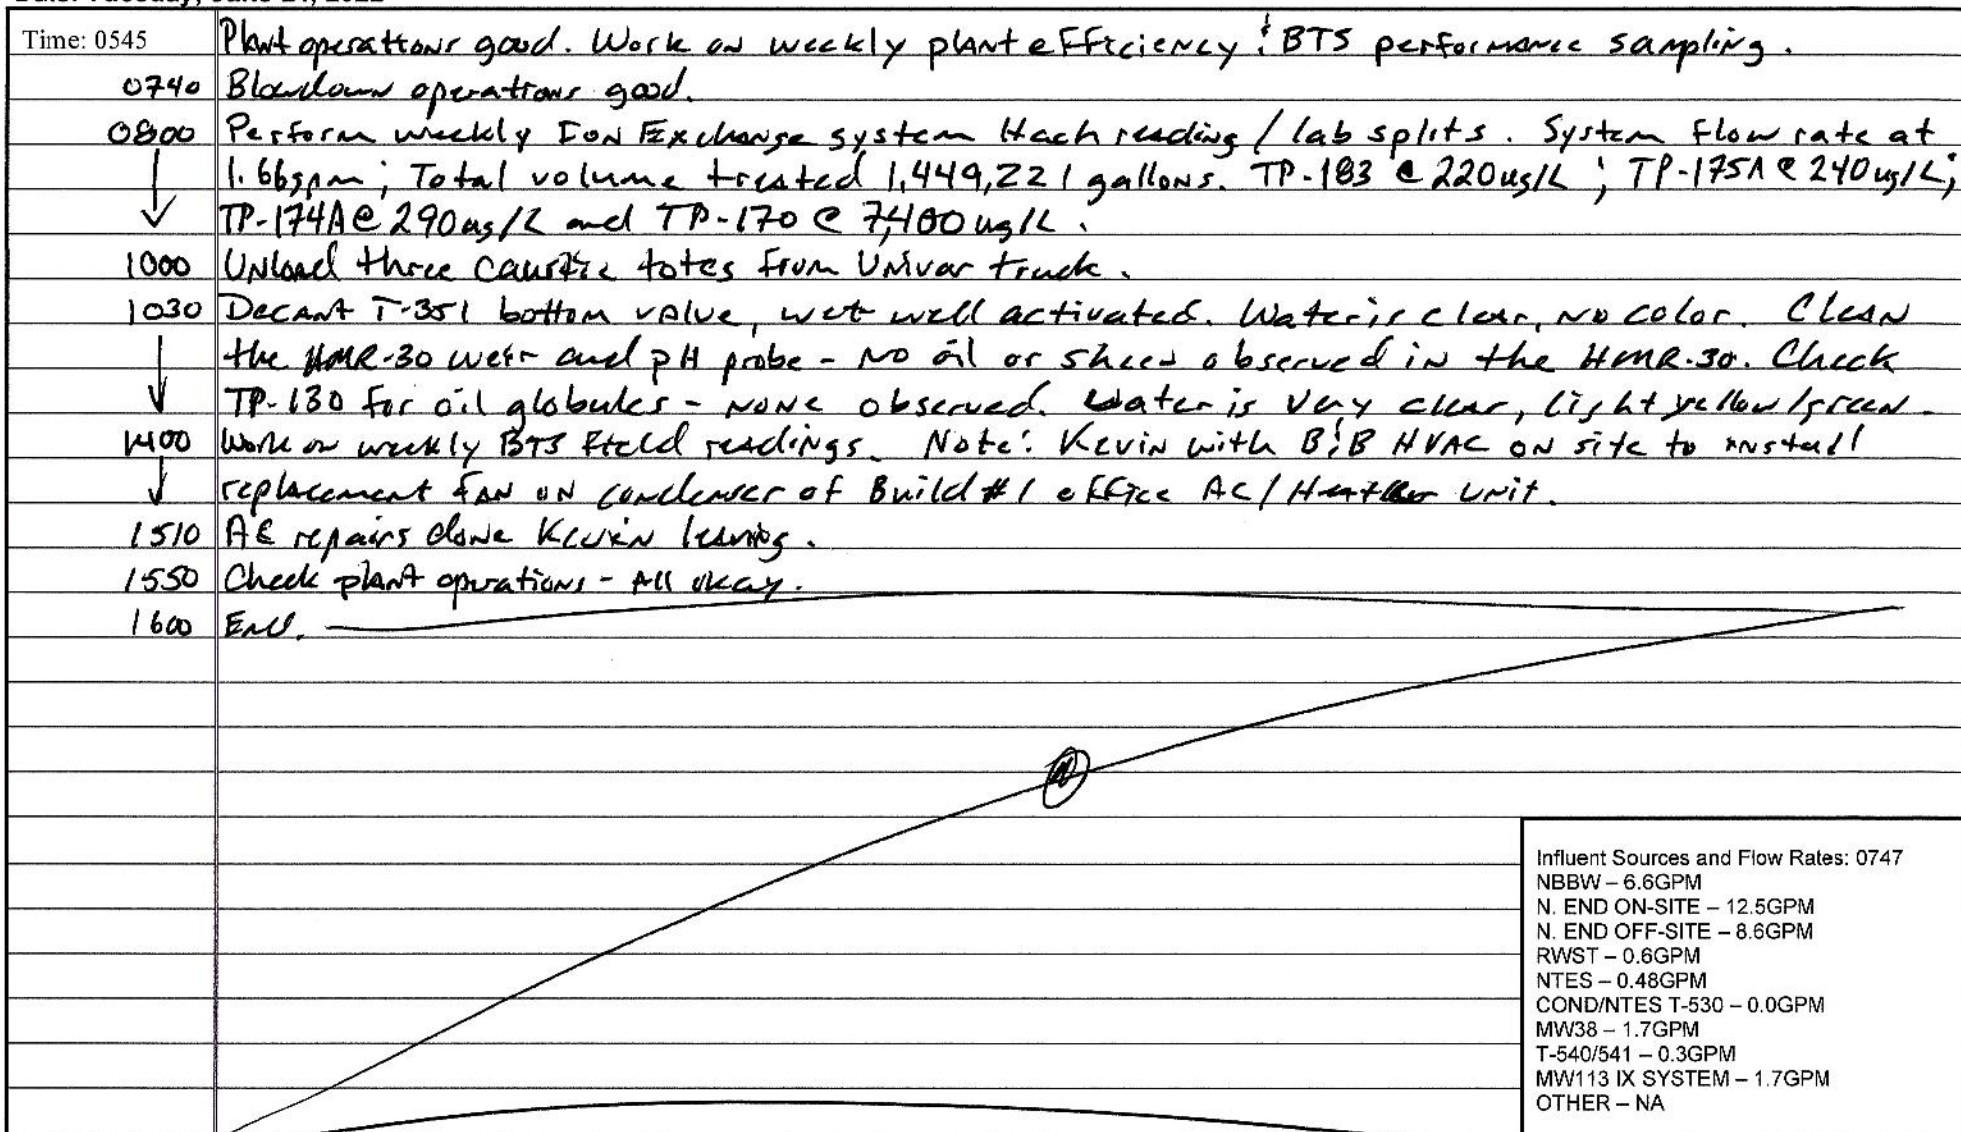 Date: Tuesday, June 21, 2022
Time: 0545 Plant operations good. Work on weekly plant efficiency & BTS performance sampling.
0740 Blowdown operations good.
0800 Perform weekly Ion Exchange system Hach reading / lab splits. System flow rate at
1.66gpm; Total volume treated 1,449,221 gallons. TP-183 @ 220ug/L; TP-175A @ 240ug/L;
TP-174A @ 290ug/L and TP-170 @ 7,400ug/L.
1000 Unload three caustic totes from Univar truck.
1030 Decant T-351 bottom valve, wet well activated. Water is clear, no color. Clean
the HMR-30 weir and pH probe - no oil or sheen observed in the HMR-30. Check
TP-130 for oil globules - none observed. Water is very clear, light yellow/green.
1400 Work on weekly BTS field readings. Note: Kevin with B&B HVAC on site to install
replacement fan on condenser of Build #1 office AC/Heater Unit.
1510 AC repairs done Kevin leaving.
1550 Check plant operations - All okay.
1600 End.
Influent Sources and Flow Rates: 0747
NBBW – 6.6GPM
N. END ON-SITE – 12.5GPM
N. END OFF-SITE – 8.6GPM
RWST – 0.6GPM
NTES – 0.48GPM
COND/NTES T-530 – 0.0GPM
MW38 – 1.7GPM
T-540/541 – 0.3GPM
MW113 IX SYSTEM – 1.7GPM
OTHER – NA